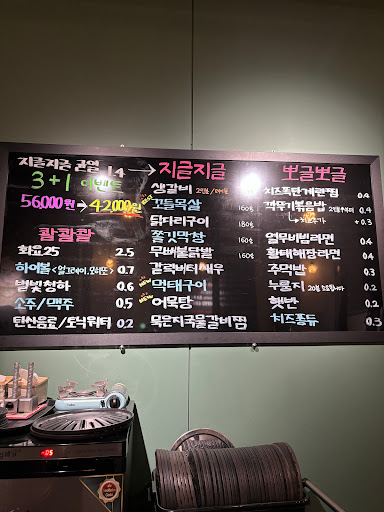 지글지글 금일 14
3+1 이벤트
56,000원 → 42,000원
쾀쾀쾀
화요25 2.5
하이볼 <얼그레이, 모히또> 0.7
별빛청하 0.6
소주/맥주 0.5
탄산음료/토닉워터 0.2
→ 지글지글
생갈비
꼬들목살 160g
닭다리구이 180g
쫄깃막창 160g
무뼈불닭발 160g
갈릭버터새우
먹태구이
어묵탕
묵은지국물갈비찜
뽀글뽀글
치즈폭탄계란찜 0.4
깍두기볶음밥 0.4
+ 0.3
열무비빔라면 0.4
황태해장라면 0.4
주먹밥 0.3
누룽지 0.3
햇반 0.2
치즈퐁듀 0.3